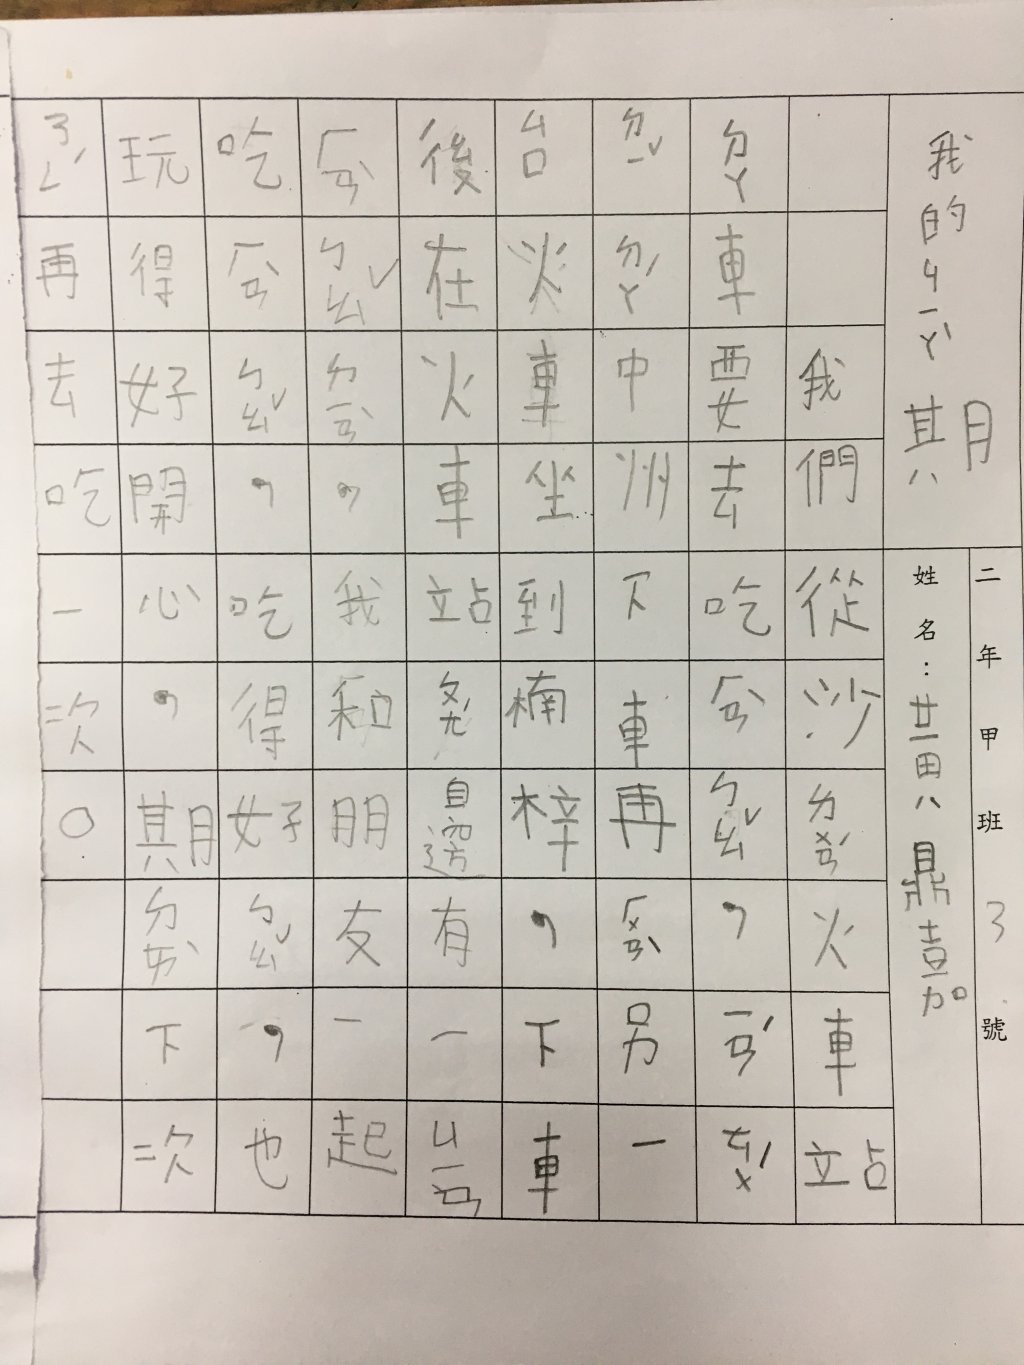 我的ㄐㄧㄚˋ期
二年甲班 3 號
姓名：黃鼎嘉
我們從沙ㄌㄨㄣˋ火車站
ㄉㄚ車要去吃ㄏㄢˋㄅㄠˇ，ㄧㄢˊㄊㄨˊ
ㄉㄧˇㄉㄚˊ中州下車再ㄏㄨㄢˋ另一
台火車坐到楠梓，下車
後在火車站邊有一ㄐㄧㄢ
ㄏㄢˋㄅㄠˇㄉㄧㄢˋ，我和朋友一起
吃ㄏㄢˋㄅㄠˇ，吃得好ㄅㄠˇ，也
玩得好開心，期ㄉㄞˋ下次
ㄋㄥˊ再去吃一次。